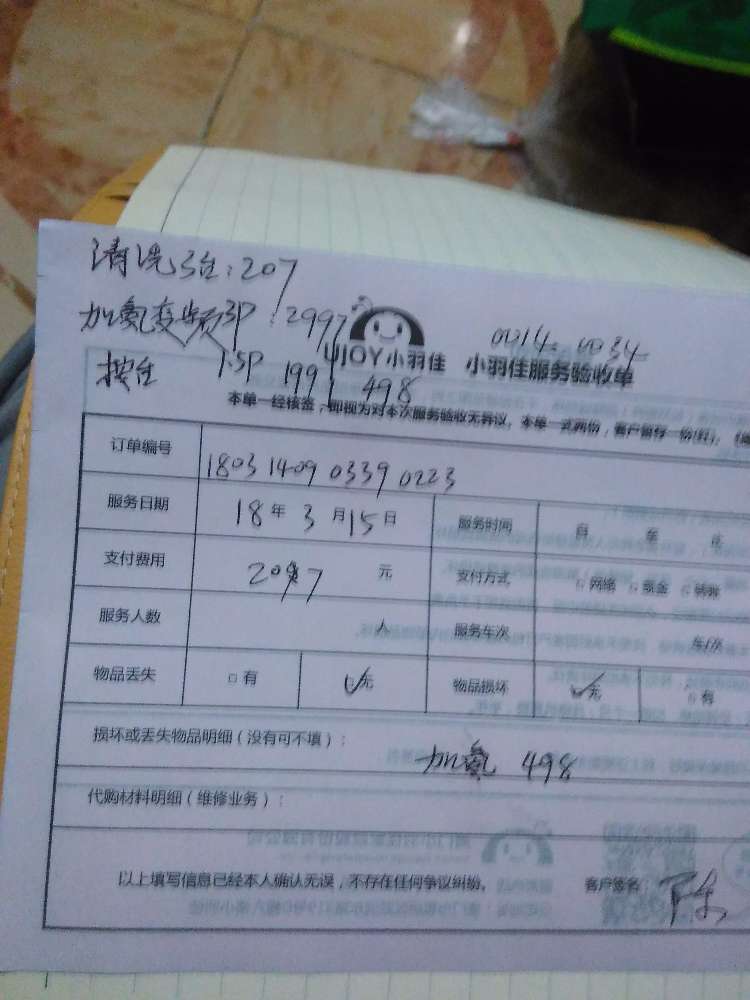 清洗3台:207
加氨变频3P:299
0014-0034
UJOY小羽佳 小羽佳服务验收单
按台 1.5P 199 498
本单一经核签,即视为对本次服务验收无异议。本单一式两份,客户留存一份
订单编号 1803 1409 0339 0223
服务日期 18年3月15日 服务时间
支付费用 元 支付方式 □网络 □现金 □转账
服务人数 人 服务车次 车/次
物品丢失 □有 无 物品损坏 无 □有
损坏或丢失物品明细(没有可不填):
加氨 498
代购材料明细(维修业务):
以上填写信息已经本人确认无误,不存在任何争议纠纷。 客户签名: